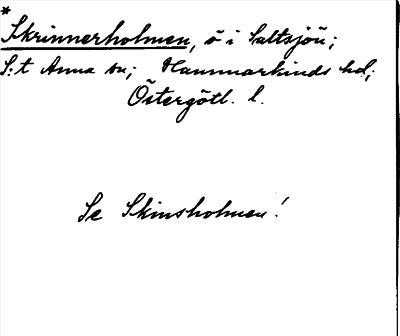 *
Skrinnerholmen, ö i Saltsjön;
S:t Anna sn; Hammarkinds hd;
Östergötl. l.
Se Skinsholmen!